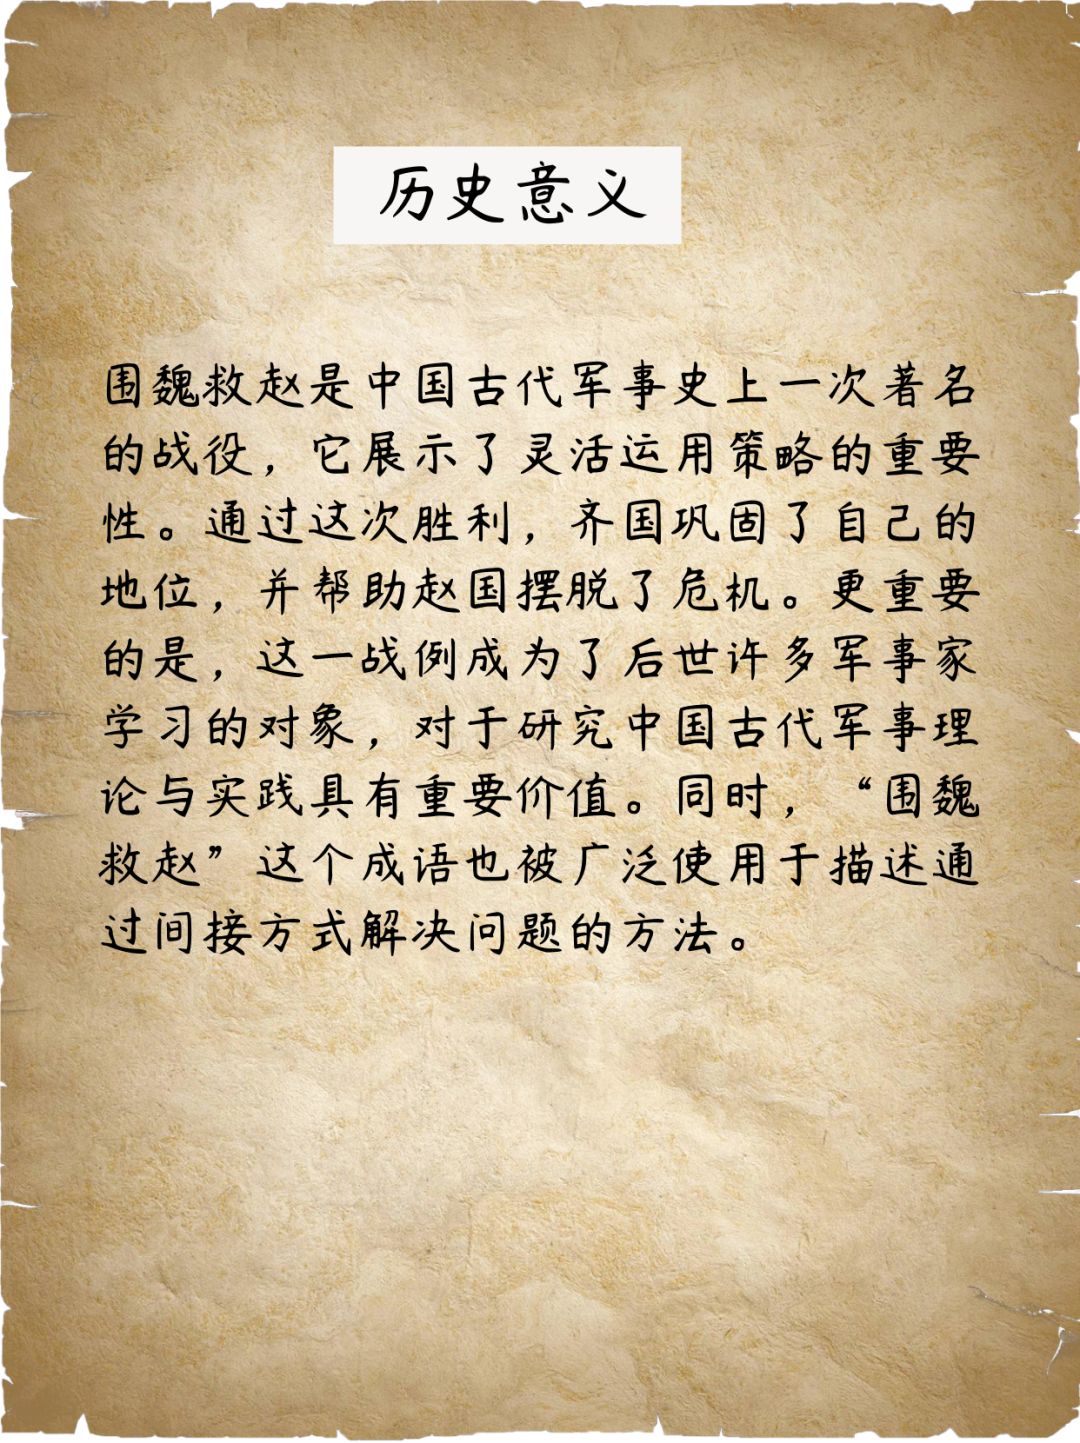 历史意义
围魏救赵是中国古代军事史上一次著名
的战役，它展示了灵活运用策略的重要
性。通过这次胜利，齐国巩固了自己的
地位，并帮助赵国摆脱了危机。更重要
的是，这一战例成为了后世许多军事家
学习的对象，对于研究中国古代军事理
论与实践具有重要价值。同时，“围魏
救赵”这个成语也被广泛使用于描述通
过间接方式解决问题的方法。